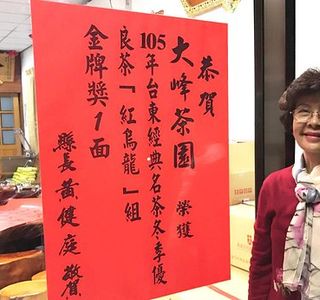 恭賀
大峰茶園 榮獲
105年台東經典名茶冬季優
良茶「紅烏龍」組
金牌獎1面
縣長黃健庭 敬賀